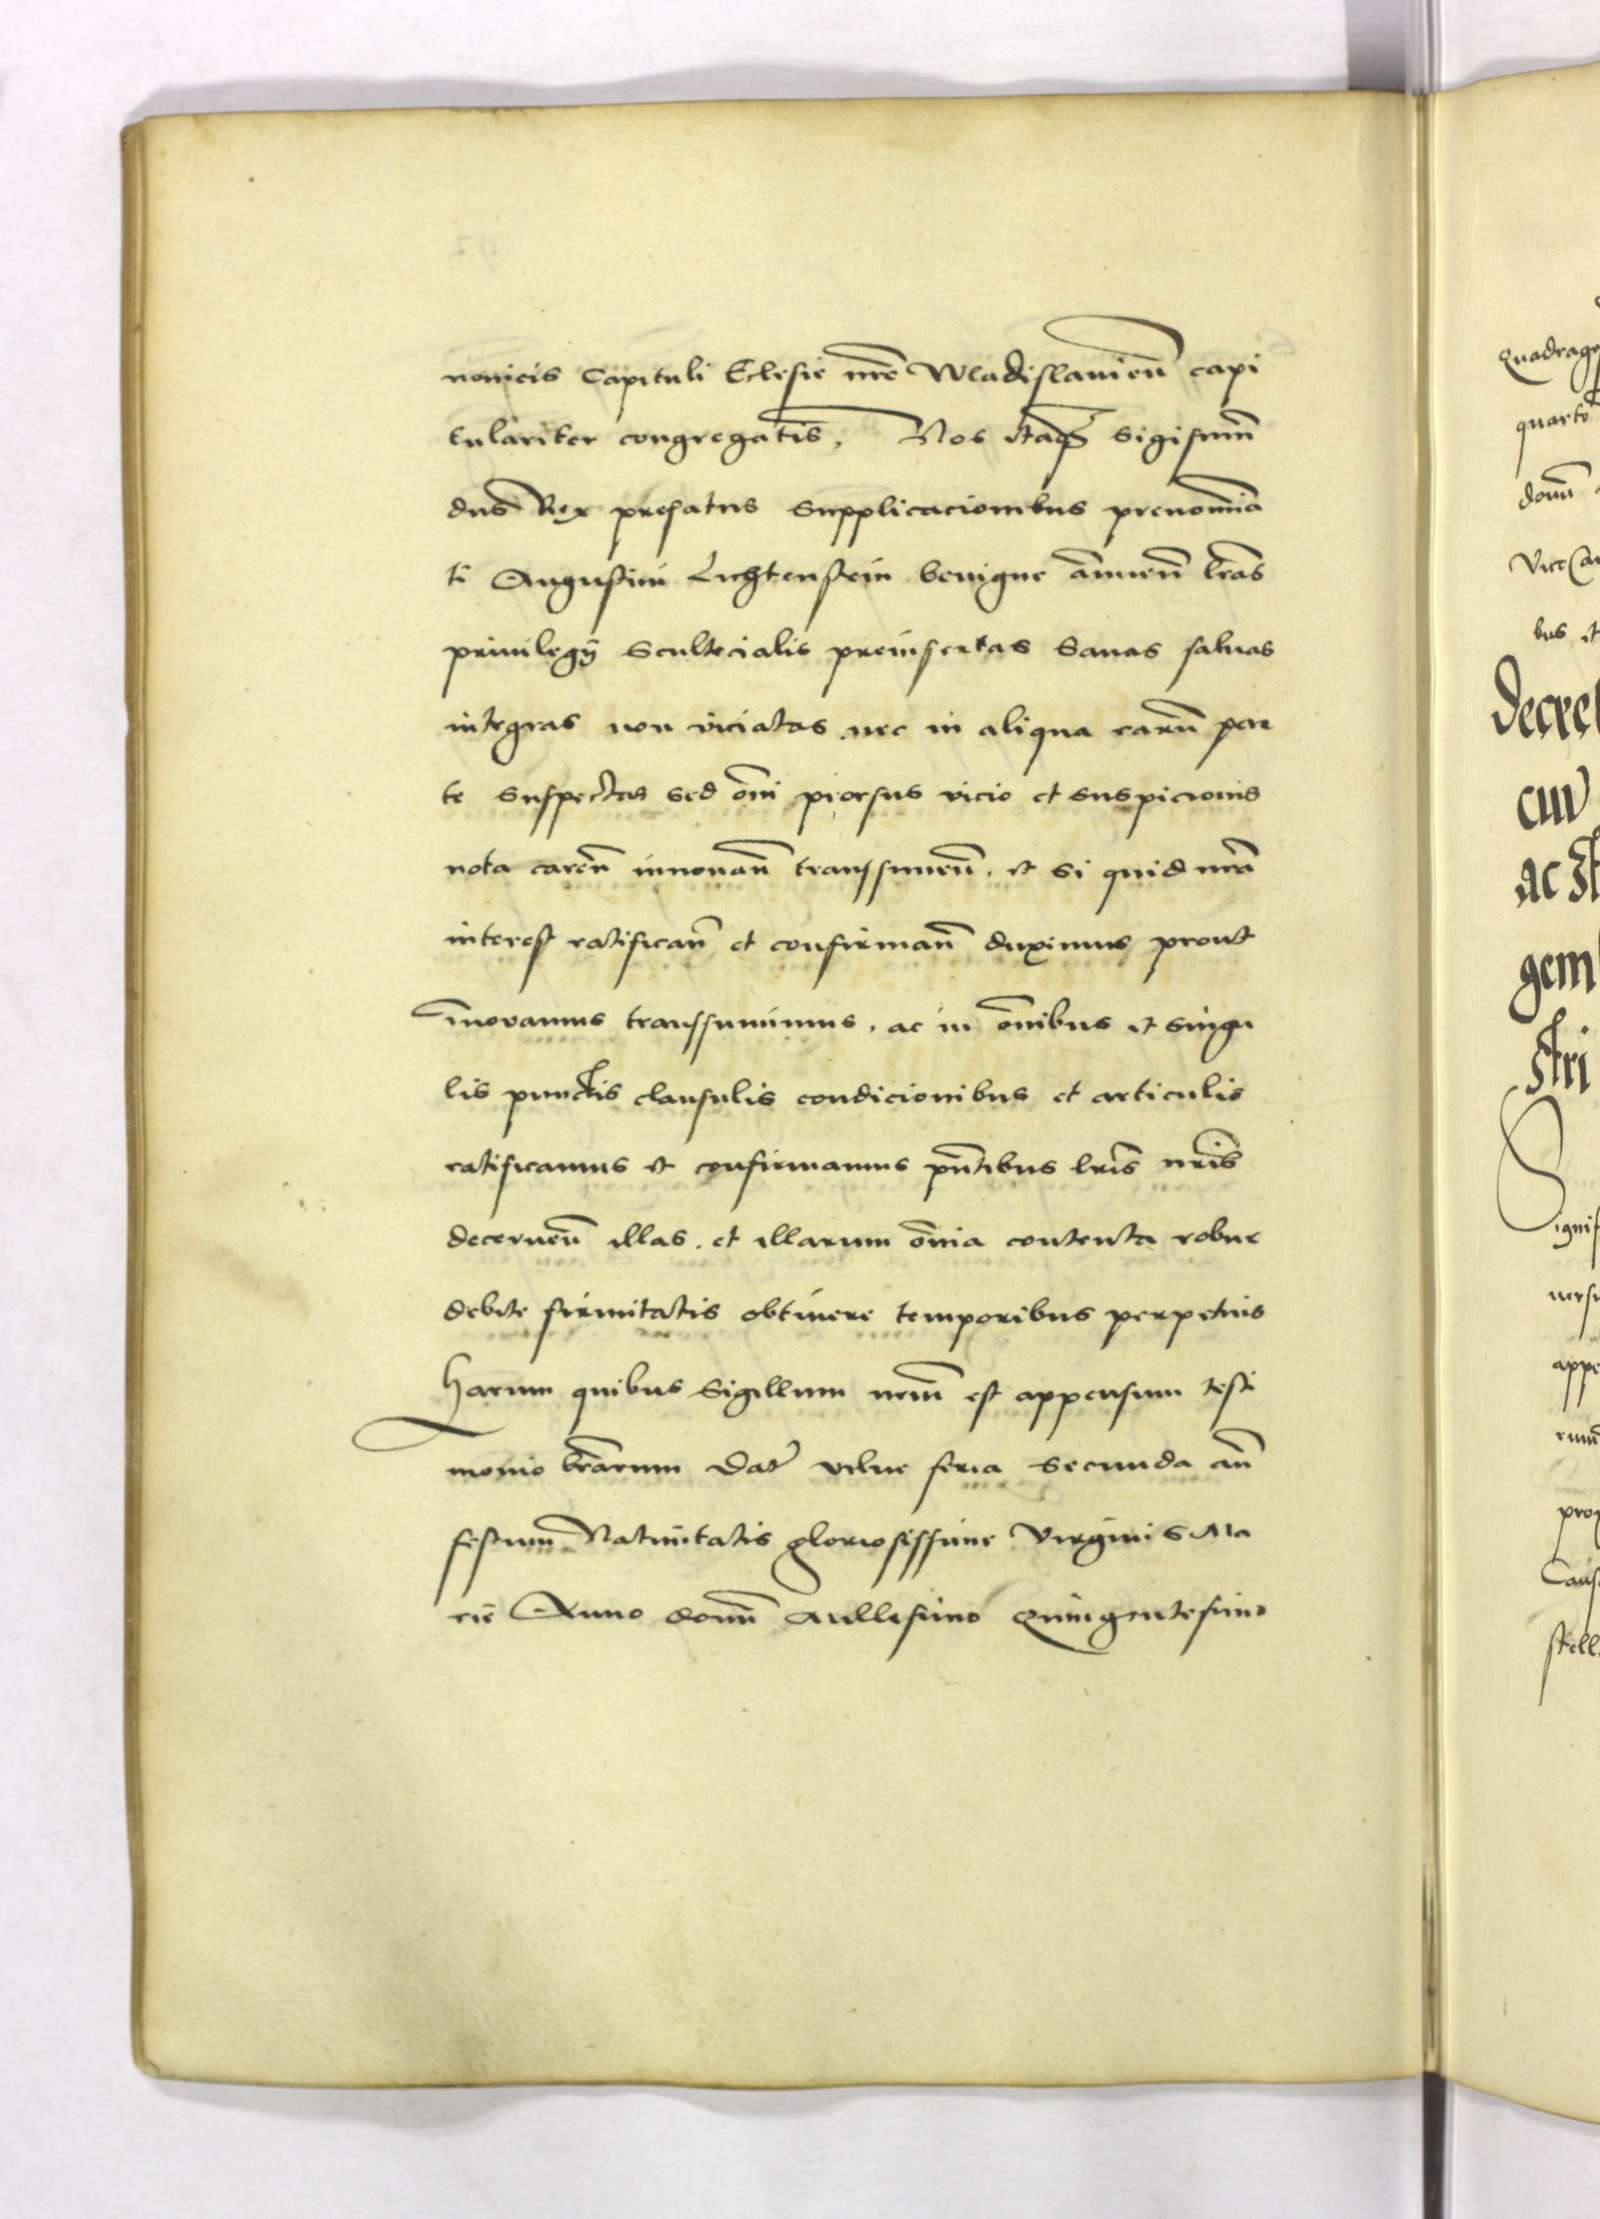 nonicis Capituli Eclesie nrē Wladislauien̄ capi
tulariter congregatis. Nos itaq̃ Sigismun̄
dus Rex prefatus supplicacionibus prenomīa
ti Augustini Lichtenstein benigne ānuen̄ lrās
priuilegij Scultecialis preinsertas Sanas saluas
integras non viciatas nec in aliqua earū par
te suspectas sed om̄i prorsus vicio et suspicionis
nota caren̄ innouan̄ transsumen̄. et si quid nrā
interest ratifican̄ et confirman̄ duximus prout
īnovamus transsumimus. ac in om̄ibus et singu
lis punctis clausulis condicionibus et articulis
ratificamus et confirmamus pn̄tibus lrīs nrīs
decernen̄ illas. et illarum om̄ia contenta robur
debite firmitatis obtinere temporibus perpetuis
Harum quibus Sigillum nrūm est appensum testi
monio lrārum Dat̄ vilne feria secunda an̄
festum Natiuitatis gloriosissime virginis Ma
rie Anno domī Millesimo Quingentesimo
Quadrage
quarto
domī
Vice Ca
bus et
decret
cuu
ac St
gem
stri
Signif
appe
Caus
stell